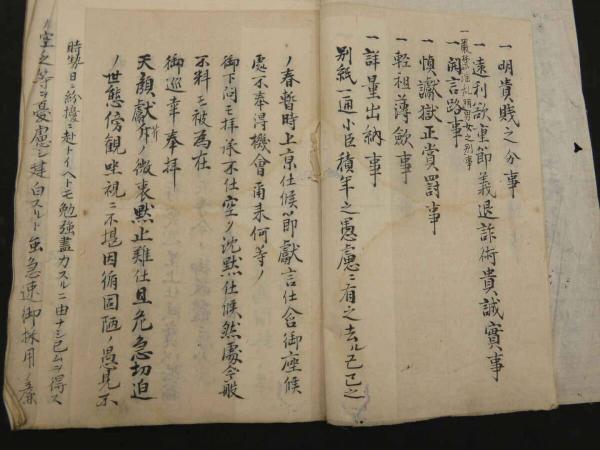 一明貴賤之分事
一遠利欲重節義退詐術貴誠實事
一嚴 淫乱明男女之別事
一開言路事
一慎讞獄正賞罰事
一軽租薄斂事
一詳量出納事
別紙一通小臣積年之愚慮ニ有之去ル己巳之
ノ春暫時上京仕候節獻言仕含御座候
處不奉得機會爾来何等ノ
御下問モ拝承不仕空ク沈黙仕候然處今般
不料モ被為在
御巡幸奉拝
天顔獻芹ノ微衷黙止難仕且危急切迫
ノ世態傍観坐視ニ不堪因循固陋ノ愚見不
時勢日ニ紛擾ニ赴トイヘトモ勉強盡力スルニ由ナシ已ムヲ得ス
空之等ヲ憂慮シ建白スルト虽急速御採用ノ